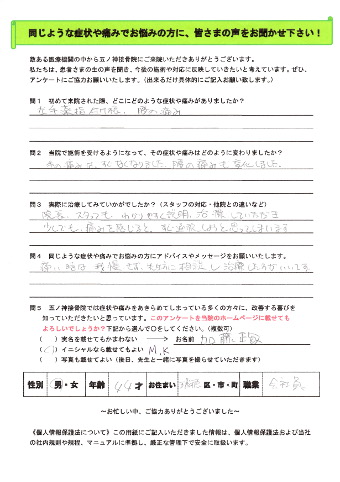 同じような症状や痛みでお悩みの方に、皆さまの声をお聞かせ下さい！
数ある医療機関の中から五ノ神接骨院にご来院いただきありがとうございます。
私たちは、患者さまの生の声を聞き、今後の施術や対応に反映していきたいと考えています。ぜひ、
アンケートにご協力お願いいたします。（出来るだけ具体的にご記入お願い致します。）
問１　初めて来院された際、どこにどのような症状や痛みがありましたか？
腰の痛み
問２　当院で施術を受けるようになって、その症状や痛みはどのように変わりましたか？
痛みは、すぐなくなりました。腰の痛みも変化しました。
問３　実際に治療してみていかがでしたか？（スタッフの対応・他院との違いなど）
院長、スタッフも、わかりやすく説明、治療していただき
少しでも、痛みを感じると、すぐ治療しようと思ってしまいます
問４　同じような症状や痛みでお悩みの方にアドバイスやメッセージをお願いします。
痛い時は我慢せず、すぐに相談し治療した方がいいです
問５　五ノ神接骨院では症状や痛みをあきらめてしまっている多くの方々に、改善する喜びを
知っていただきたいと思っています。このアンケートを当院のホームページに載せても
よろしいでしょうか？下記から選んで○をしてください。（複数可）
（　）実名を載せてもかまわない　→　お名前
（　）イニシャルなら載せてもよい　M.K
（　）写真も載せてよい（後日、先生と一緒に写真を撮らせていただきます）
性別　男・女　年齢　44才　お住まい　区・市・町　職業　会社員
～お忙しい中、ご協力ありがとうございました～
《個人情報保護法について》この用紙にご記入いただきました情報は、個人情報保護法および当社
の社内規則や規程、マニュアルに準拠し、厳正な管理下で安全に取扱います。